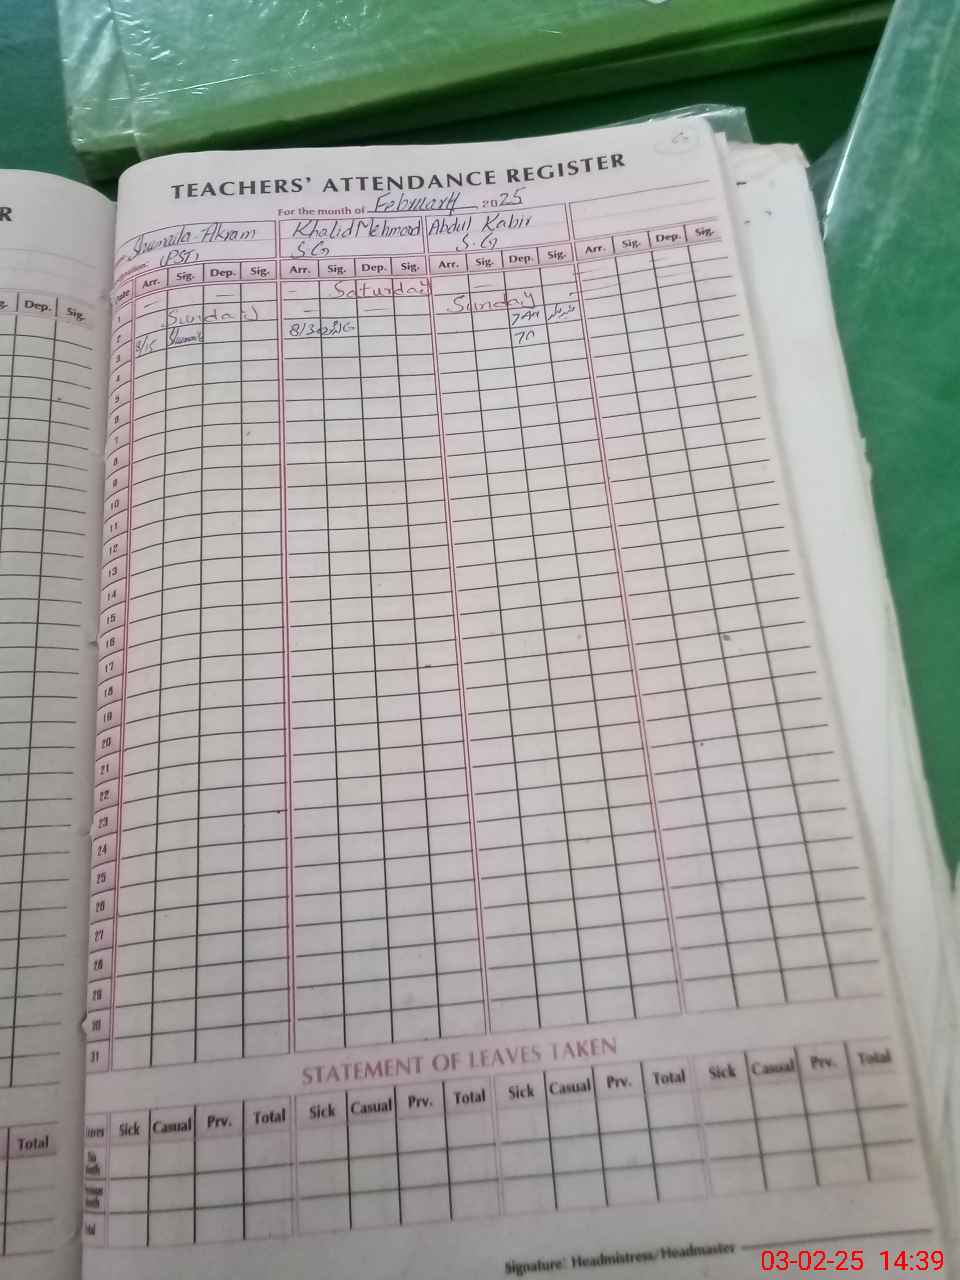 R
TEACHERS' ATTENDANCE REGISTER
For the month of February 2025
Shumaila Akram Khalid Mehmood Abdul Kabir
(PST) S.G S.G
Dep. Sig.
Date Arr. Sig. Dep. Sig. Arr. Sig. Dep. Sig. Arr. Sig. Dep. Sig. Arr. Sig. Dep. Sig.
1 — — - Saturday —
2 Sunday — — Sunday -
3 8/15 8/30 7AM
4
5
6
7
8
9
10
11
12
13
14
15
16
17
18
19
20
21
22
23
24
25
26
27
28
29
30
31
STATEMENT OF LEAVES TAKEN
Total
Sick Casual Prv. Total Sick Casual Prv. Total Sick Casual Prv. Total Sick Casual Prv. Total
Signature: Headmistress/Headmaster
03-02-25 14:39